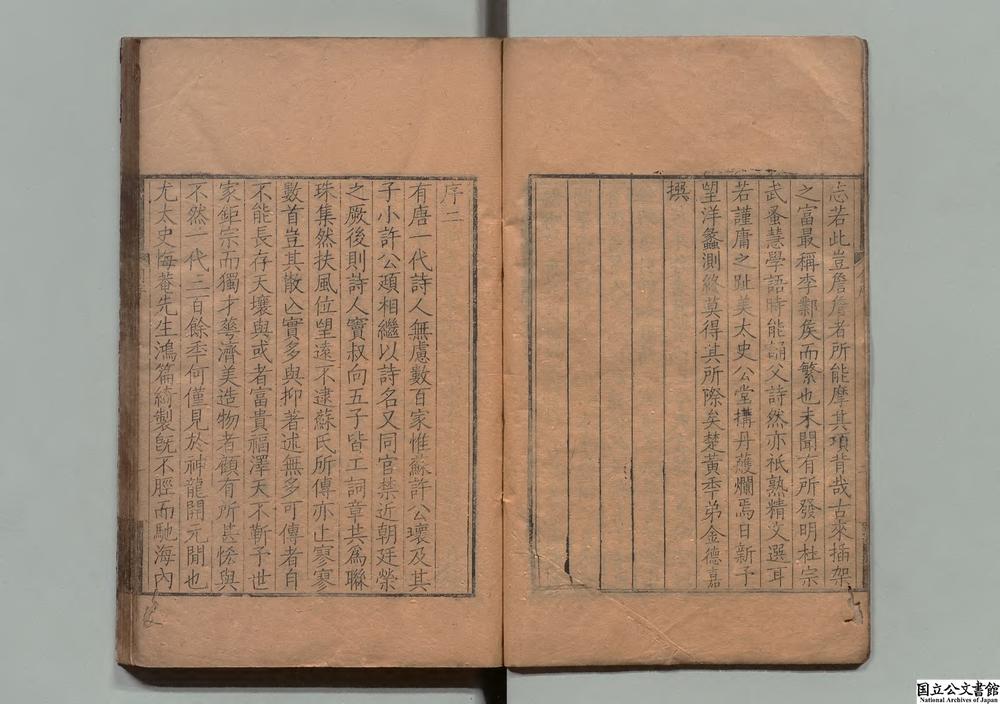 志若此豈詹詹者所能摩其項背哉古來插架
之富最稱李鄴侯而繁也未聞有所發明杜宗
武蚤慧學語時能誦父詩然亦祇熟精文選耳
若謹庸之趾美太史公堂構丹雘爛焉日新予
望洋蠡測終莫得其所際矣楚黃年弟金德嘉
撰
序二
有唐一代詩人無慮數百家惟蘇許公瓌及其
子小許公頲相繼以詩名又同官禁近朝廷榮
之厥後則詩人竇叔向五子皆工詞章共爲聯
珠集然扶風位望遠不逮蘇氏所傳亦止寥寥
數首豈其散亾實多與抑著述無多可傳者自
不能長存天壤與或者富貴福澤天不靳予世
家鉅宗而獨才華濟美造物者顧有所甚恡與
不然一代三百餘年何僅見於神龍開元間也
尤太史悔菴先生鴻篇綺製旣不脛而馳海內
国立公文書館
National Archives of Japan